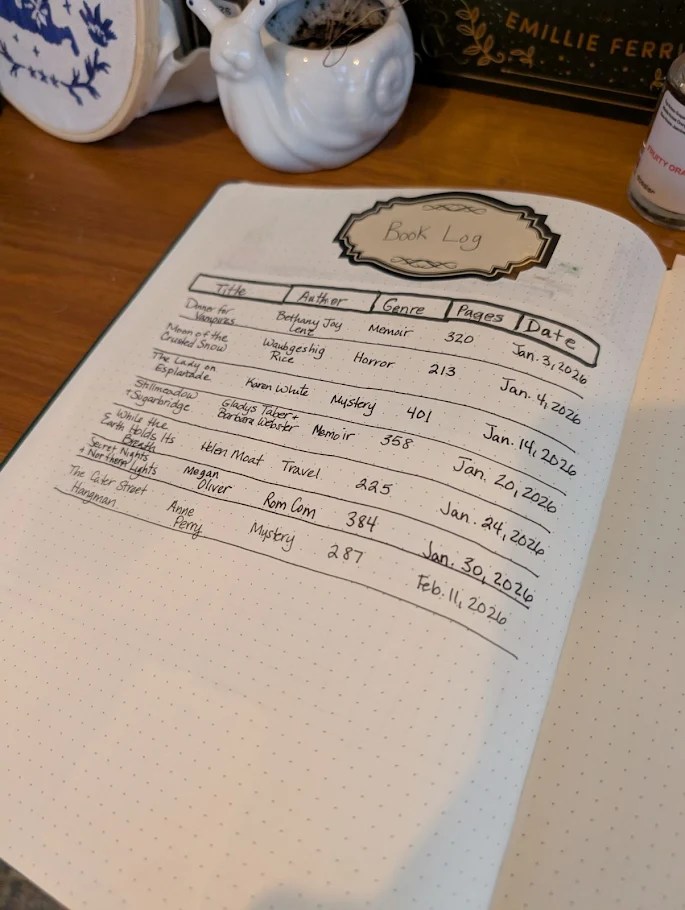 EMILLIE FERR
Book Log
Title Author Genre Pages Date
Dinner for Vampires Bethany Joy Lenz Memoir 320 Jan. 3, 2026
Moon of the Crusted Snow Waubgeshig Rice Horror 213 Jan. 4, 2026
The Lady on Esplanade Karen White Mystery 401 Jan. 14, 2026
Stillmeadow + Sugarbridge Gladys Taber + Barbara Webster Memoir 358 Jan. 20, 2026
While the Earth Holds Its Breath Helen Moat Travel 225 Jan. 24, 2026
Secret Nights + Northern Lights Megan Oliver Rom Com 384 Jan. 30, 2026
The Cater Street Hangman Anne Perry Mystery 287 Feb. 11, 2026